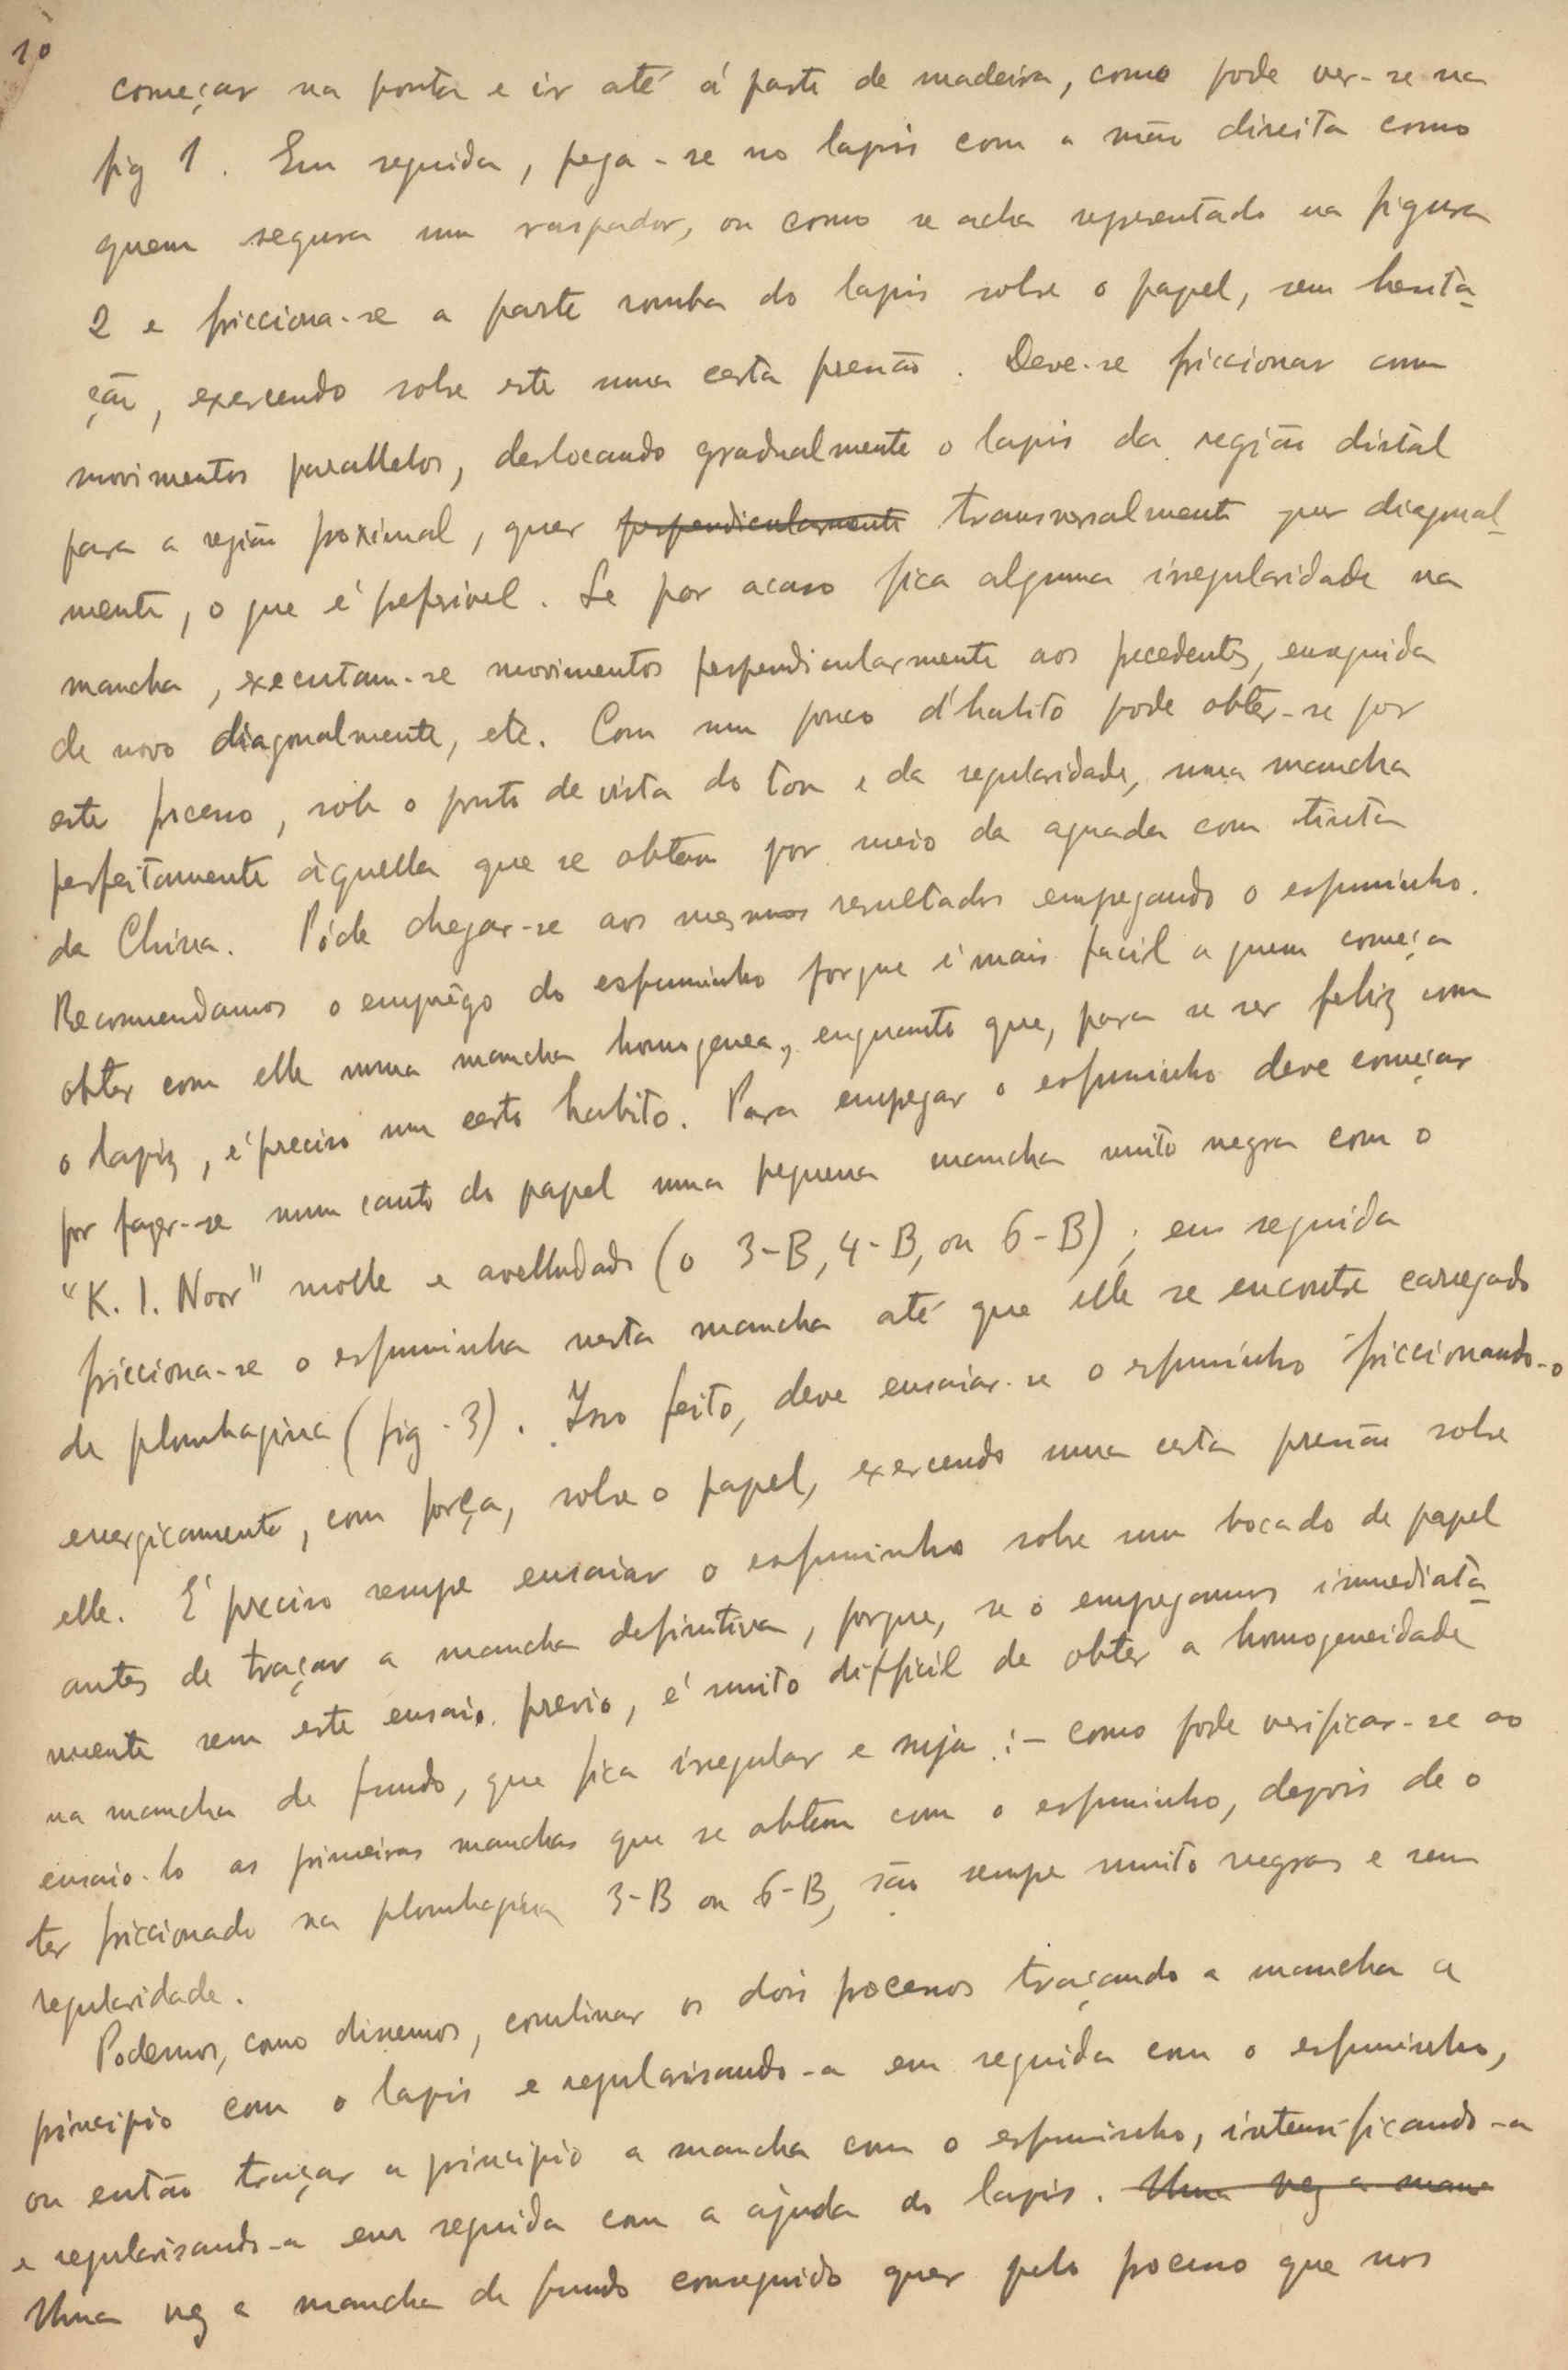 10
começar na ponta e ir até á parte de madeira, como pode ver-se na
fig 1. Em seguida, pega-se no lapis com a mão direita como
quem segura um raspador, ou como se acha representado na figura
2 e fricciona-se a parte romba do lapis sobre o papel, sem hesita-
ção, exercendo sobre este uma certa pressão. Deve-se friccionar com
movimentos parallelos, deslocando gradualmente o lapis da região distal
para a região proximal, quer perpendicularmente transversalmente quer diagonal-
mente, o que é preferivel. Se por acaso fica alguma irregularidade na
mancha, executam-se movimentos perpendicularmente aos precedentes, enseguida
de novo diagonalmente, etc. Com um pouco d'habito pode obter-se por
este processo, sob o ponto de vista do tom e da regularidade, uma mancha
perfeitamente àquella que se obtem por meio da aguada com tinta
da China. Póde chegar-se aos mesmos resultados empregando o esfuminho.
Recomendamos o emprêgo do esfuminho porque é mais facil a quem começa
obter com elle uma mancha homogenea, enquanto que, para se ser feliz com
o lapiz, é preciso um certo habito. Para empregar o esfuminho deve começar
por fazer-se num canto do papel uma pequena mancha muito negra com o
"K. I. Noor" molle e avelludado (o 3-B, 4-B, ou 6-B); em seguida
fricciona-se o esfuminha nesta mancha até que elle se encontre carregado
de plombagina (fig. 3). Isso feito, deve ensaiar-se o esfuminho friccionando-o
energicamente, com força, sobre o papel, exercendo uma certa pressão sobre
elle. É preciso sempre ensaiar o esfuminho sobre um bocado de papel
antes de traçar a mancha definitiva, porque, se o empregamos immediata-
mente sem este ensaio previo, é muito difficil de obter a homogeneidade
na mancha de fundo, que fica irregular e suja :- como pode verificar-se ao
ensaio-lo as primeiras manchas que se obtem com o esfuminho, depois de o
ter friccionado na plombagina 3-B ou 6-B, são sempre muito negras e sem
regularidade.
Podemos, como dissemos, combinar os dois processos traçando a mancha a
principio com o lapis e regularisando-a em seguida com o esfuminho,
ou então traçar a principio a mancha com o esfuminho, intensificando-a
e regularisando-a em seguida com a ajuda do lapis. Uma vez a manc
Uma vez a mancha de fundo conseguido quer pelo processo que nos